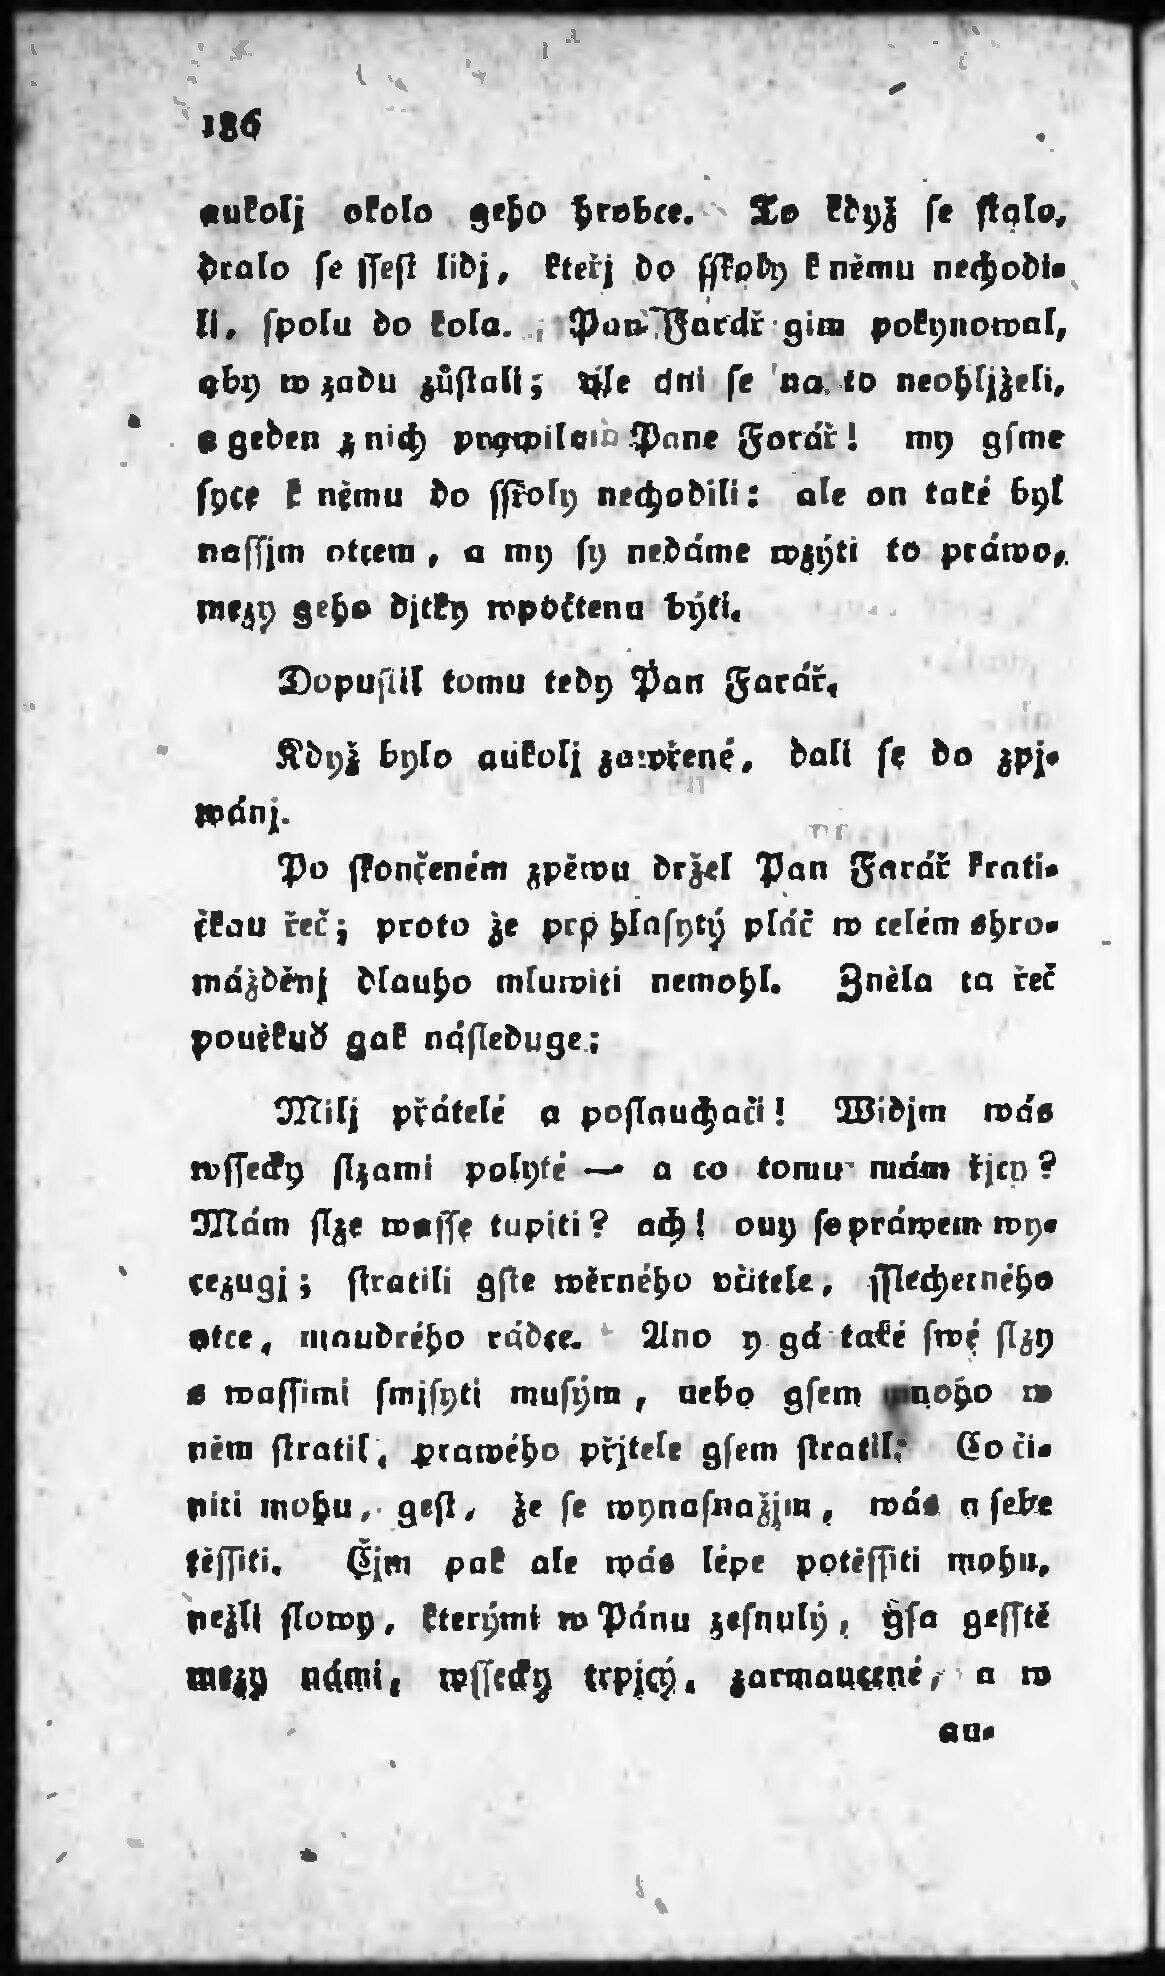 186
aukolj okolo geho hrobce. To když se stalo,
dralo se ssest lidj, kteřj do sskoly k němu nechodi-
li, spolu do kola. Pan Farář gim pokynowal,
aby w zadu zůstali; ale ani se na to neohljželi,
a geden z nich prawil: Pane Farář! my gsme
syce k němu do sskoly nechodili: ale on také byl
nassjm otcem, a my sy nedáme wzýti to práwo,
mezy geho djtky wpočtena býti.
Dopustil tomu tedy Pan Farář.
Když bylo aukolj zawřené, dali se do zpj-
wánj.
Po skončeném zpěwu držel Pan Farář krati-
čkau řeč; proto že pro hlasytý pláč w celém shro-
mážděnj dlauho mluwiti nemohl. Zněla ta řeč
poněkud gak následuge:
Milj přátelé a poslauchači! Widjm wás
wssecky slzami polyté — a co tomu mám řjcy?
Mám slze wasse tupiti? ach! ony se práwem wy-
cezugj; stratili gste wěrného včitele, sslechetného
otce, maudrého rádce. Ano y gá také swé slzy
s wassimi smjsyti musým, nebo gsem mnoho w
něm stratil, prawého přjtele gsem stratil: Co či-
niti mohu, gest, že se wynasnažjm, wás a sebe
těssiti. Čjm pak ale wás lépe potěssiti mohu,
nežli slowy, kterými w Pánu zesnulý, gsa gesstě
mezy námi, wssecky trpjcý, zarmaucené, a w
au-